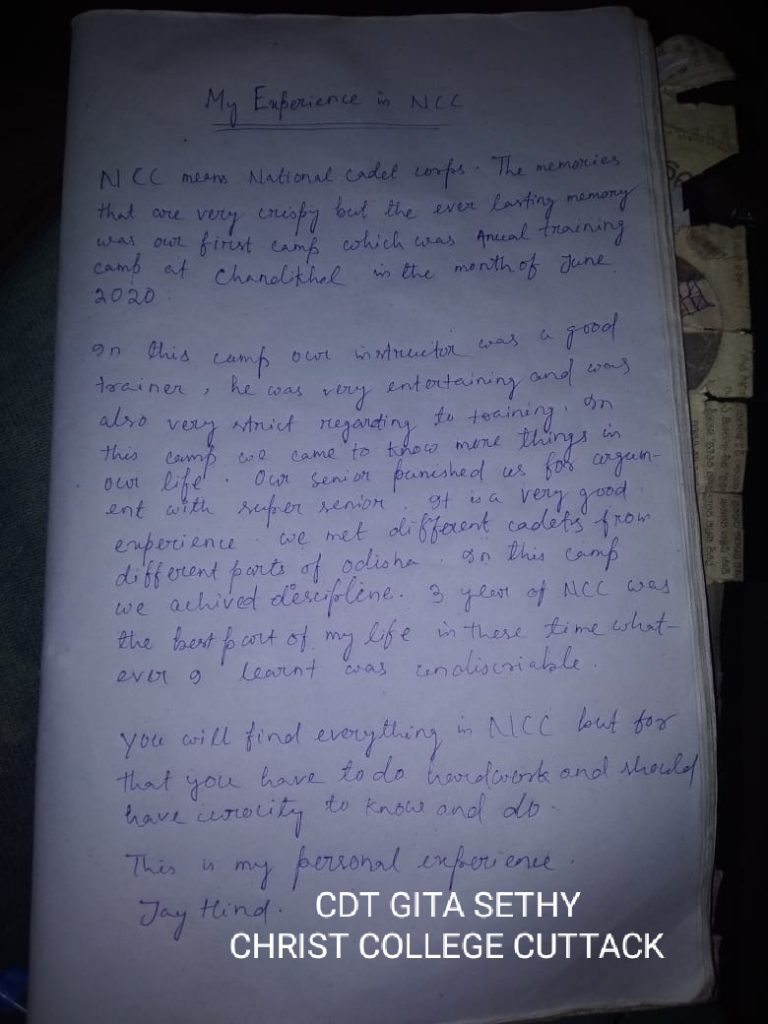 My Experience in NCC
NCC means National Cadet corps. The memories
that are very crispy but the ever lasting memory
was our first camp which was Anual training
camp at Chandikhol in the month of June
2020.
In this camp our instructor was a good
trainer, he was very entertaining and was
also very strict regarding to training. In
this camp we came to know more things in
our life. Our senior punished us for argum-
ent with super senior. It is a very good
experience. we met different cadets from
different parts of odisha. In this camp
we achived descipline. 3 year of NCC was
the best part of my life in these time what-
ever I learnt was
You will find everything in NCC but for
that you have to do hardwork and should
have to know and do.
This is my personal experience.
Jay Hind.
CDT GITA SETHY
CHRIST COLLEGE CUTTACK